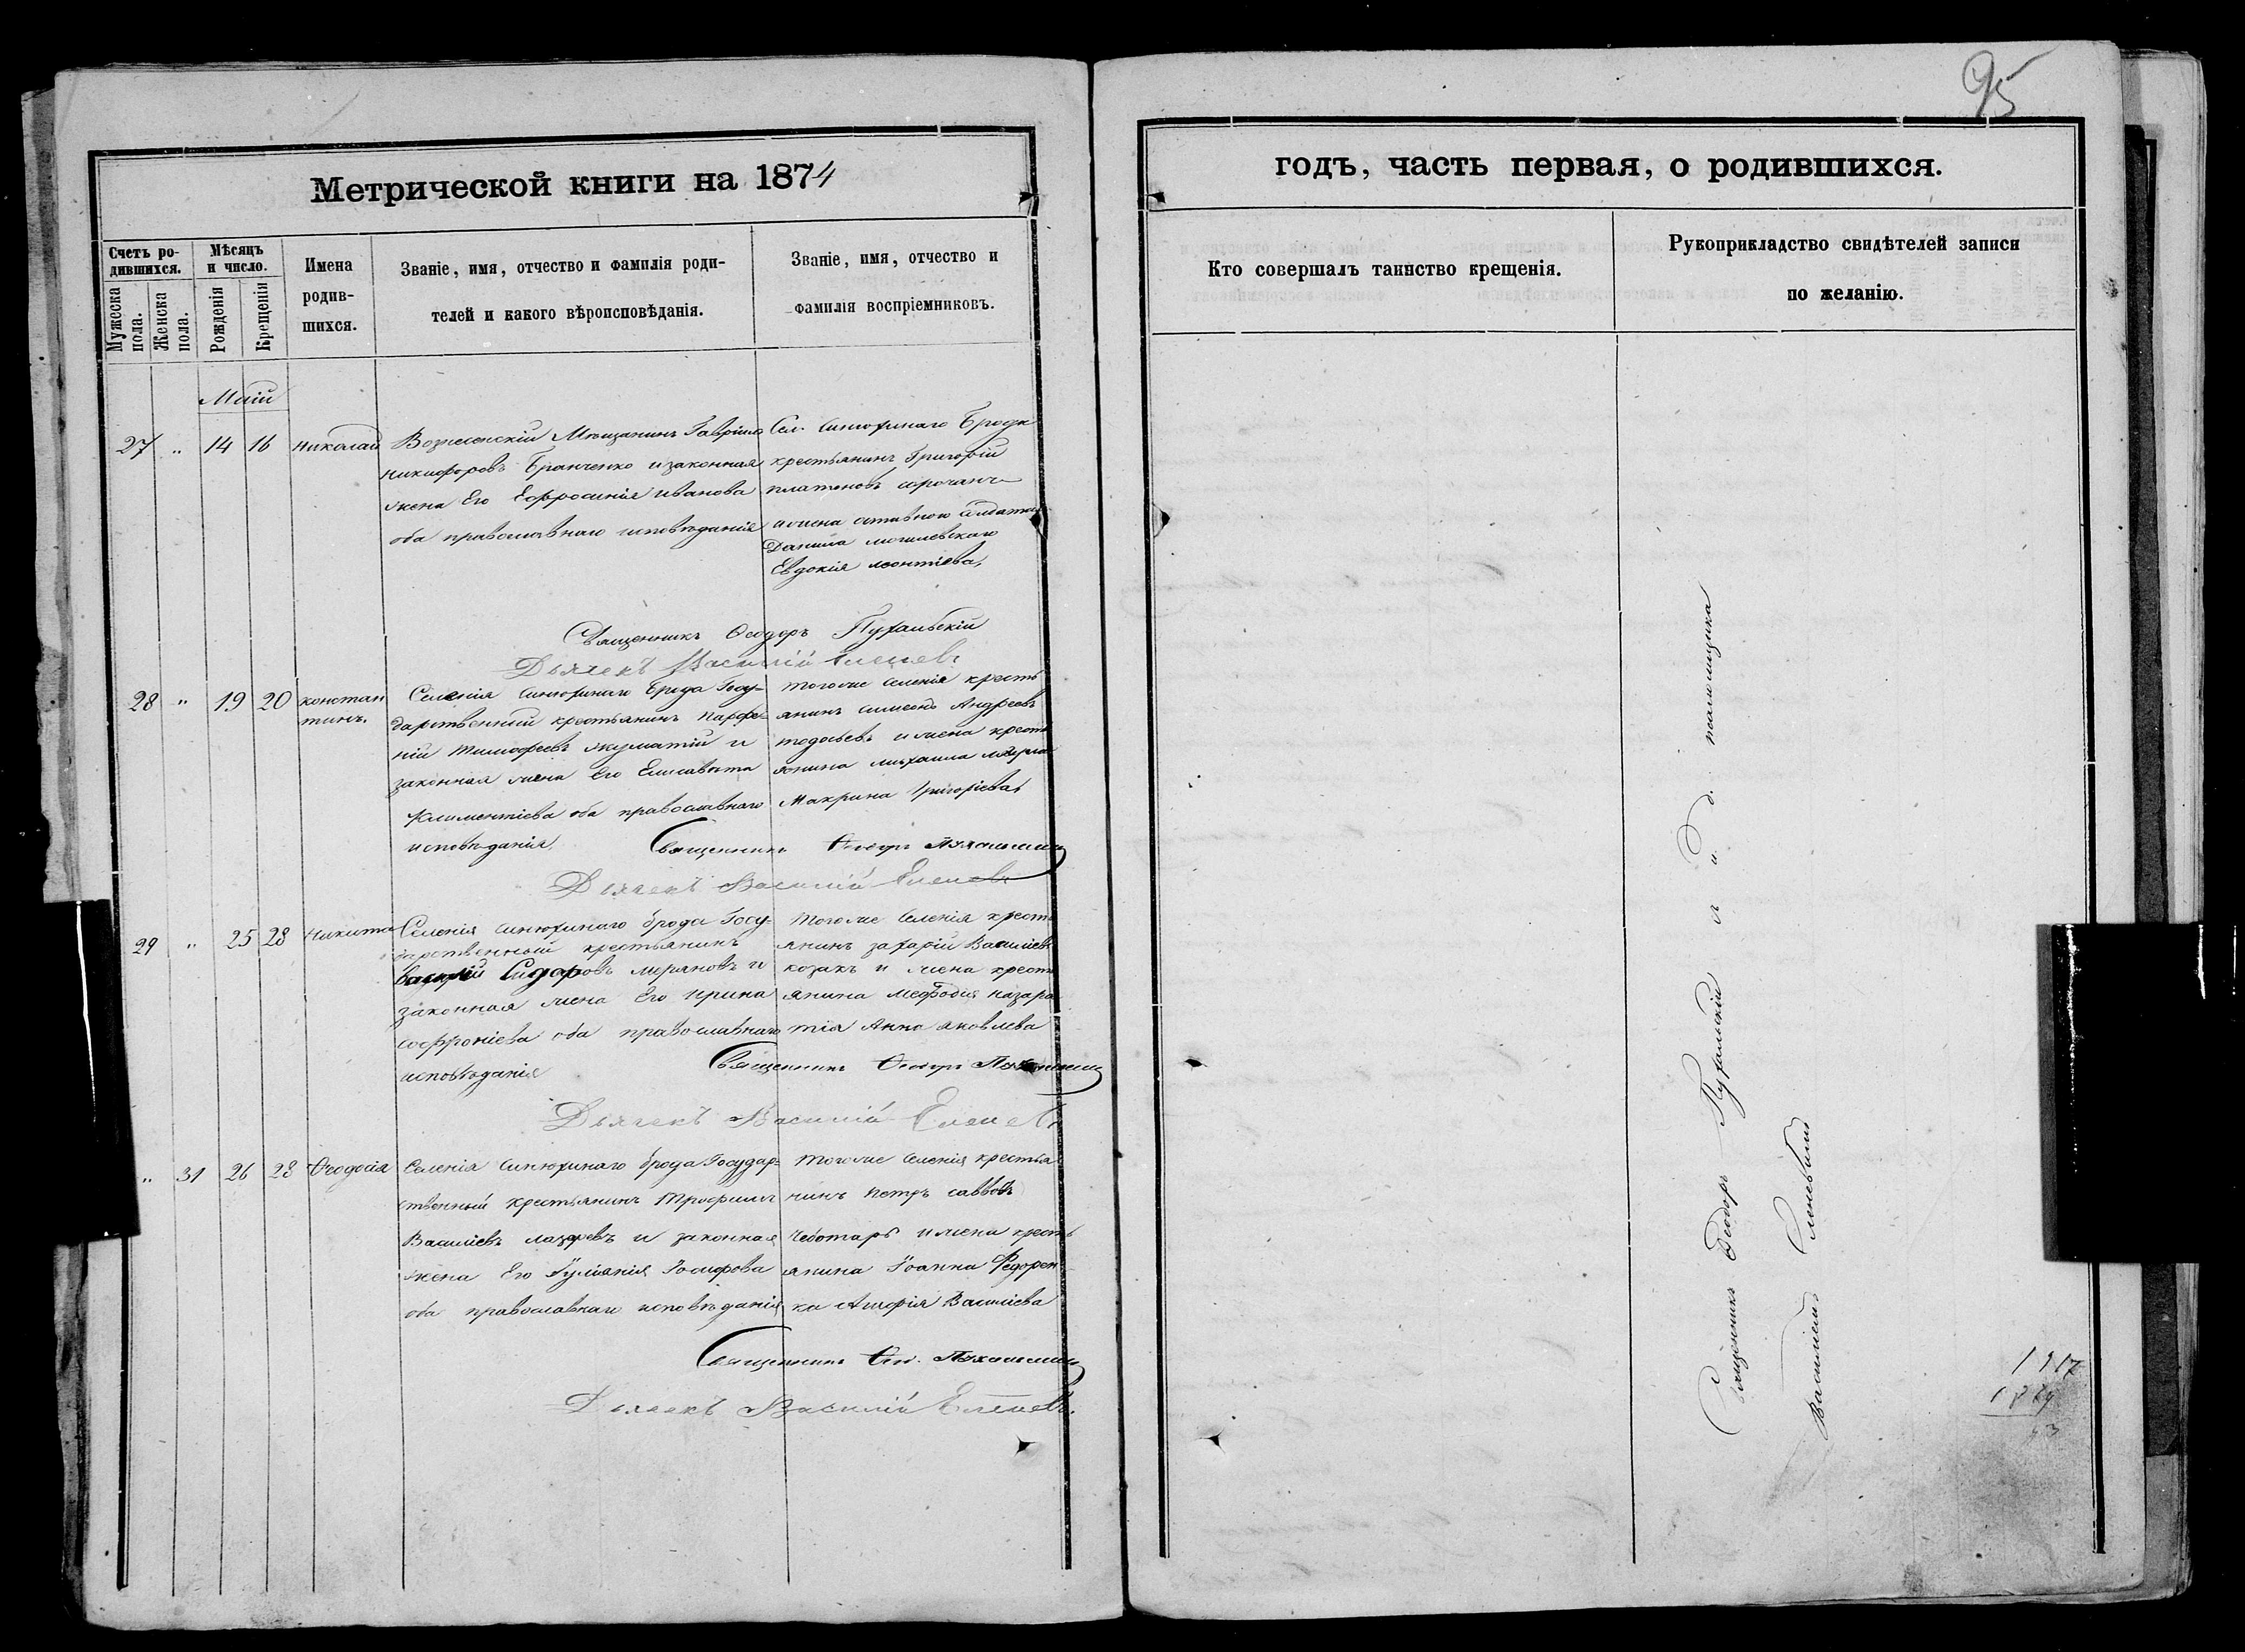 95
Метрической книги на 1874
годъ, часть первая, о родившихся.
Счетъ ро-
дившихся.
Мужеска
пола.
Женска
пола.
Мѣсяцъ
и число.
Рожденія
Крещенія
Имена
родив-
шихся.
Званіе, имя, отчество и фамилія роди-
телей и какого вѣроисповѣданія.
Званіе, имя, отчество и
фамилія воспріемниковъ.
Кто совершалъ таинство крещенія.
Рукоприкладство свидѣтелей записи
по желанію.
Маій
27 „ 14 16 Николай
Вознесенскій Мѣщанинъ Гавріилъ
Никифоровъ Бранченко и законная
жена Его Ефросинія Иванова
оба православнаго исповѣданія
Сел. Синюхинаго Брода
крестьянинъ Григорій
Платоновъ
и жена
Данила Могилевскаго
Евдокія Леонтіева
Священникъ Ѳеодоръ Пухальскій
Дьячекъ Василій
28 „ 19 20 Констан
тинъ.
Селенія Синюхинаго Брода Госу-
дарственный крестьянинъ Парфе-
ній Тимофеевъ и
законная жена Его Елисавета
Климентіева оба православнаго
исповѣданія
Тогоже Селенія кресть
янинъ Симеонъ Андреевъ
и жена кресть
янина Михаила
Макрина Григоріева
Священникъ Ѳеодоръ Пухальскій
Дьячекъ Василій
29 „ 25 28 Никита
Селенія Синюхинаго брода Госу-
дарственный крестьянинъ
Сидоровъ и
законная жена Его Ирина
Софроніева оба православнаго
исповѣданія
Тогоже Селенія кресть
янинъ Захарій Василіевъ
козакъ и жена кресть
янина Мефодія Назара
тія Анна Яковлева
Священникъ Ѳеодоръ Пухальскій
Дьячекъ Василій
„ 31 26 28 Ѳеодосія
Селенія Синюхинаго брода Государ-
ственный крестьянинъ Трофимъ
Василіевъ Лазаревъ и законная
жена Его Іуліанія Іосифова
оба православнаго исповѣданія
Тогоже Селенія крестья
нинъ Петръ Саввовъ
Чеботарь и жена кресть
янина Іоанна Федорен
ка Василіева
Священникъ Ѳео. Пухальскій
Дьячекъ Василій
Священникъ Ѳеодоръ Пухальскій и и. д. псаломщика
Василій